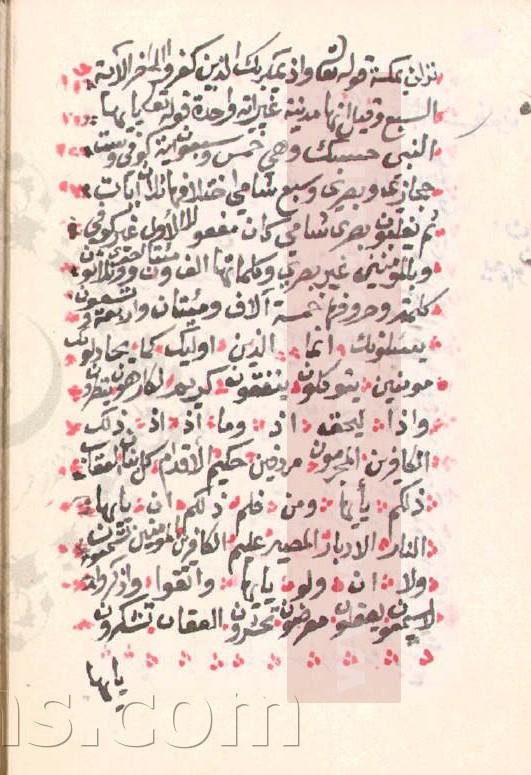 نزلت بمكة قوله تعا واذ يمكر بك الذين كفروا الى اخر الآية
السبع وقيل انها مدنية غير آية واحدة قوله تعا يايها
النبى حسبك وهى خمس وسبعون آية كوفى وست
حجازى وبصرى وسبع شامى اختلافها ثلاث آيات
ثم يغلبون بصرى شامى كان مفعولا الاول غير كوفى
وبالمؤمنين غير بصرى وكلماتها الف ومئتا وثلاثون
كلمة وحروفها خمسة آلاف ومئتان واربعة وتسعون
يسئلونك انما الذين اوليك كما يجادلونك
مومنين يتوكلون ينفقون كريم لكارهون ينظرون
واذا ليحقه اذ وما اذ اذ ذلك
الكافرين المجرمون مردفين حكيم الاقدام كل بنان العقاب
ذلكم يايها ومن فلم ذلكم ان يايها
النار الادبار المصير عليم الكافرين المومنين تسمعون
ولا ان ولو يايها واتقوا واذكروا
لا يسمعون يعقلون معرضون تحشرون العقاب تشكرون
يايها
ns.com